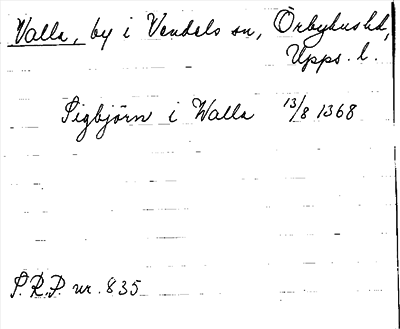 Valla, by i Vendels sn, Örbyhus hd,
Upps. l.
Sigbjörn i Walla 13/8 1368
S.R.P. nr. 835